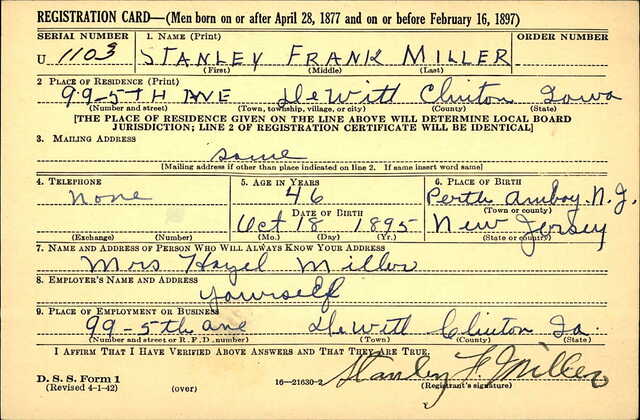 REGISTRATION CARD—(Men born on or after April 28, 1877 and on or before February 16, 1897)
SERIAL NUMBER 1. NAME (Print) ORDER NUMBER
U 1103 STANLEY FRANK MILLER
(First) (Middle) (Last)
2 PLACE OF RESIDENCE (Print)
99-5TH AVE DeWitt Clinton Iowa
(Number and street) (Town, township, village, or city) (County) (State)
[THE PLACE OF RESIDENCE GIVEN ON THE LINE ABOVE WILL DETERMINE LOCAL BOARD
JURISDICTION; LINE 2 OF REGISTRATION CERTIFICATE WILL BE IDENTICAL]
3. MAILING ADDRESS
same
[Mailing address if other than place indicated on line 2. If same insert word same]
4. TELEPHONE 5. AGE IN YEARS 6. PLACE OF BIRTH
none 46 Perth Amboy. N.J.
DATE OF BIRTH (Town or county)
Oct 18 1895 New Jersey
(Exchange) (Number) (Mo.) (Day) (Yr.) (State or country)
7. NAME AND ADDRESS OF PERSON WHO WILL ALWAYS KNOW YOUR ADDRESS
Mrs Hazel Miller
8. EMPLOYER'S NAME AND ADDRESS
yourself
9. PLACE OF EMPLOYMENT OR BUSINESS
99-5th ave DeWitt Clinton Ia.
(Number and street or R. F. D. number) (Town) (County) (State)
I AFFIRM THAT I HAVE VERIFIED ABOVE ANSWERS AND THAT THEY ARE TRUE.
Stanley F. Miller
D. S. S. Form 1
(Revised 4-1-42) (over) 16—21630-2 (Registrant's signature)